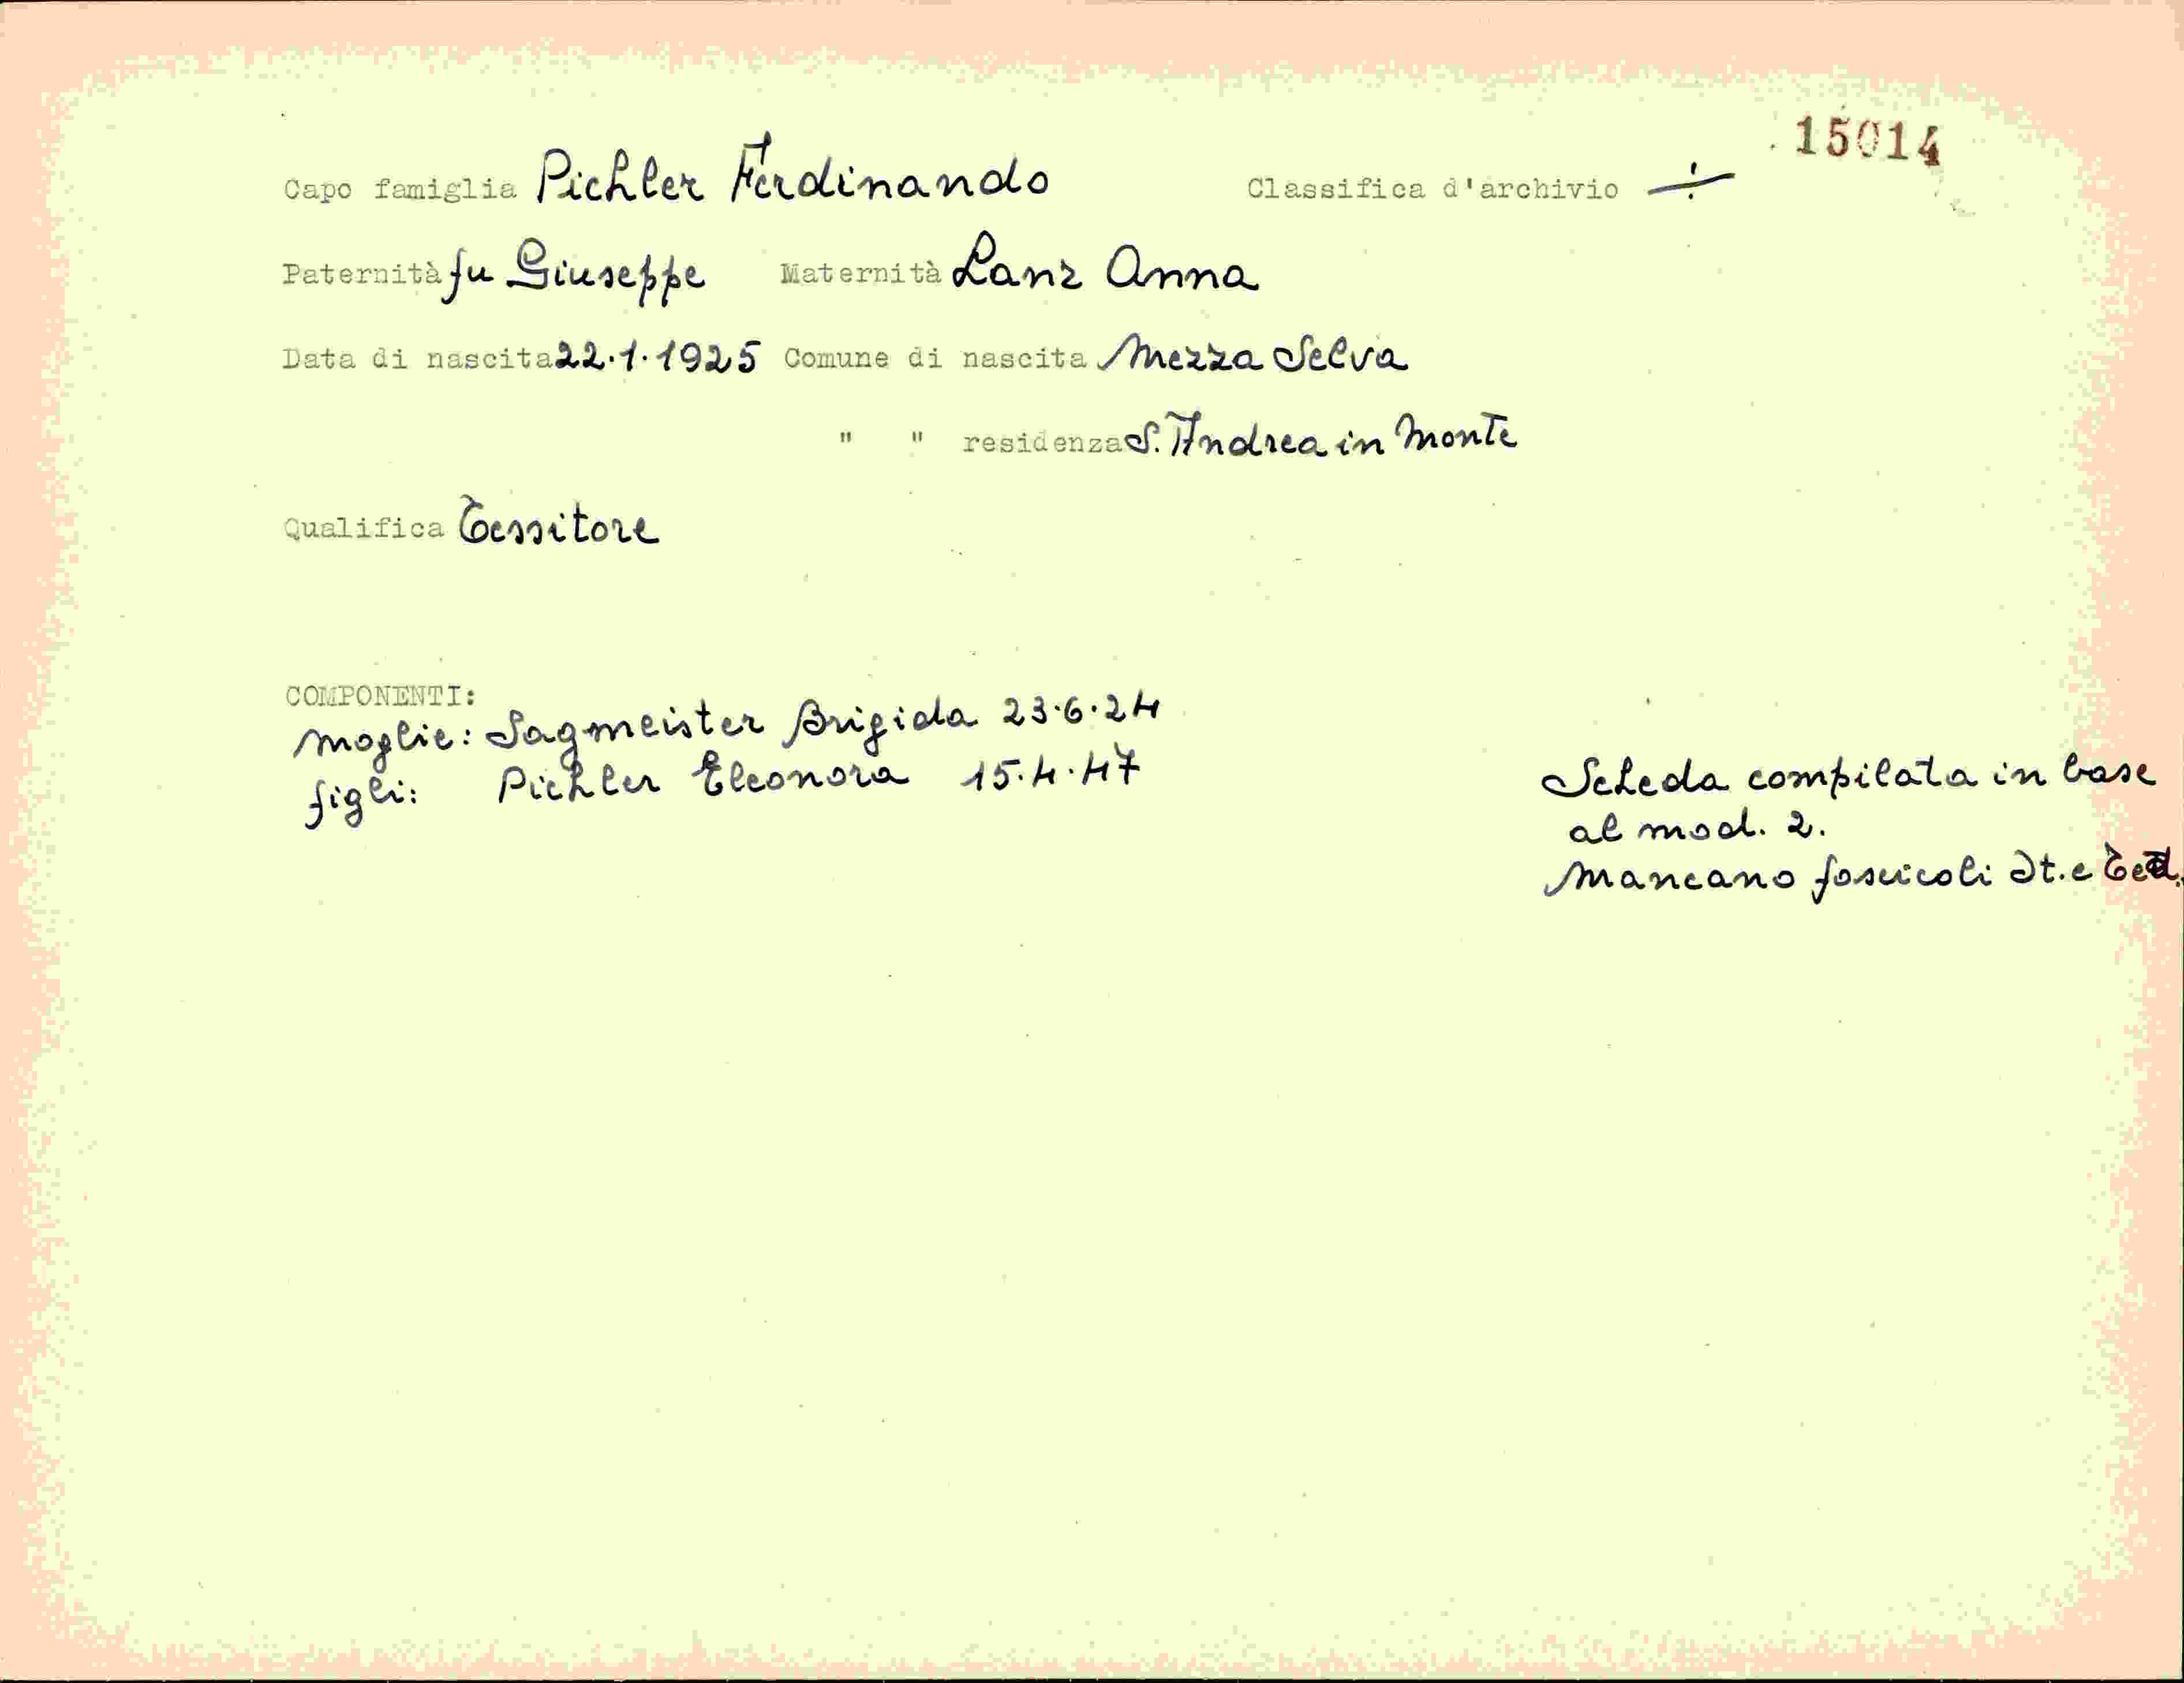 15014
Capo famiglia Pichler Ferdinando Classifica d'archivio ÷
Paternità fu Giuseppe Maternità Lanz Anna
Data di nascita 22.1.1925 Comune di nascita Mezza Selva
" " residenza S. Andrea in Monte
Qualifica Tessitore
COMPONENTI:
moglie: Sagmeister Brigida 23.6.24
figli: Pichler Eleonora 15.4.47
Scheda compilata in base
al mod. 2.
Mancano fascicoli It. e Ted.